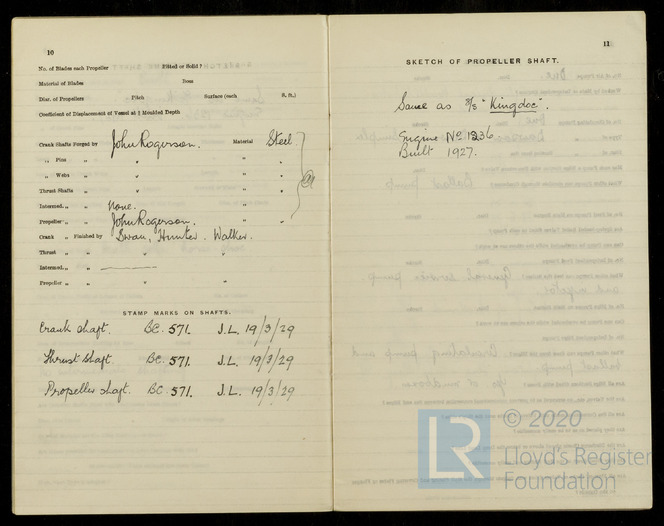 10
No. of Blades each Propeller Fitted or Solid?
Material of Blades Boss
Diar. of Propellers Pitch Surface (each S. ft.)
Coefficient of Displacement of Vessel at ¾ Moulded Depth
Crank Shafts Forged by John Rogerson. Material Steel
„ Pins „ „ „ „
„ Webs „ „ „ „
Thrust Shafts „ „ „ „
Intermed. „ „ none. „
Propeller „ „ John Rogerson. „ „
Crank „ Finished by Swan, Hunter. Walker.
Thrust „ „ „ „
Intermed. „ „
Propeller „ „ „ „
STAMP MARKS ON SHAFTS.
Crank shaft. BC. 571. J.L. 19/3/29
Thrust shaft BC. 571. J.L. 19/3/29
Propeller shaft. BC. 571. J.L. 19/3/29
11
SKETCH OF PROPELLER SHAFT.
Same as S/S "Kingdoc".
Engine No 1236
Built 1927.
© 2020
LR
Lloyd's Register
Foundation